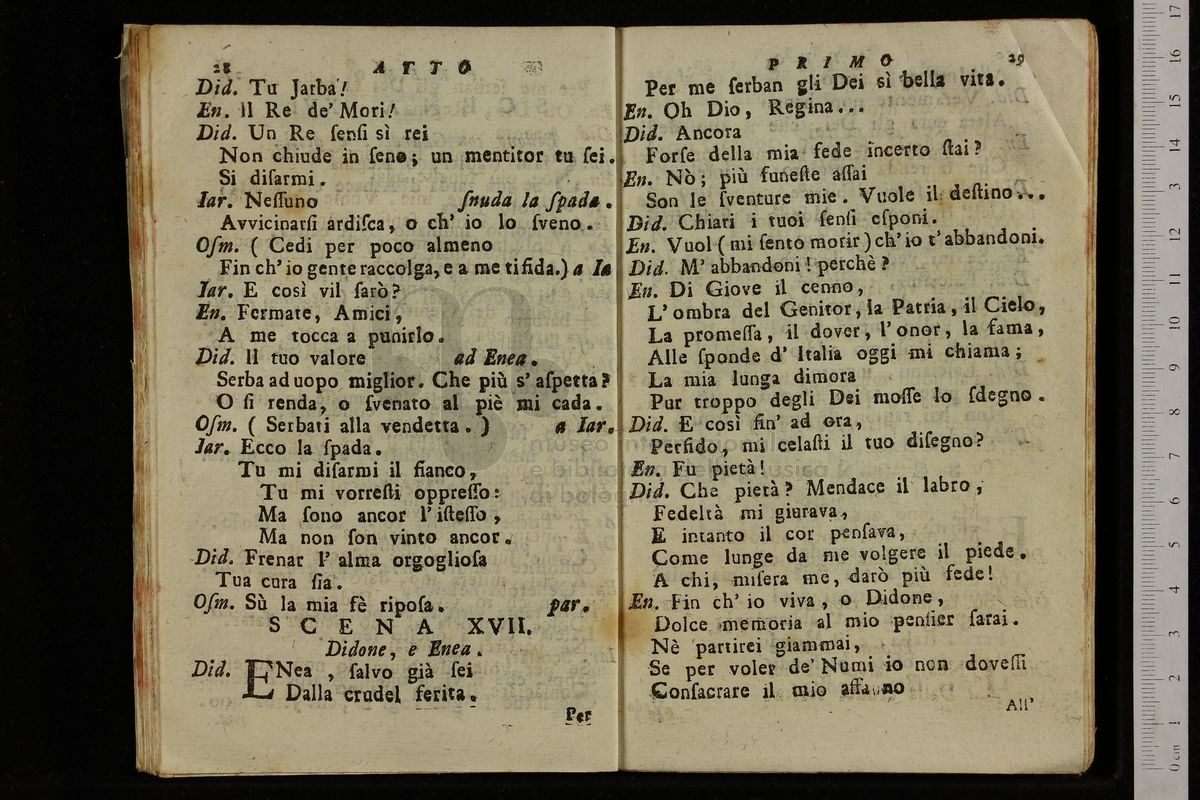 28 ATTO
Did. Tu Jarba!
En. Il Re de' Mori!
Did. Un Re ſenſi sì rei
Non chiude in ſeno; un mentitor tu ſei.
Si diſarmi.
Iar. Neſſuno ſnuda la ſpada.
Avvicinarſi ardiſca, o ch' io lo ſveno.
Oſm. ( Cedi per poco almeno
Fin ch' io gente raccolga, e a me ti fida.) a Ia
Iar. E così vil ſarò?
En. Fermate, Amici,
A me tocca a punirlo.
Did. Il tuo valore ad Enea.
Serba ad uopo miglior. Che più s' aſpetta?
O ſi renda, o ſvenato al piè mi cada.
Oſm. ( Serbati alla vendetta. ) a Iar.
Iar. Ecco la ſpada.
Tu mi diſarmi il fianco,
Tu mi vorreſti oppreſſo:
Ma ſono ancor l' iſteſſo,
Ma non ſon vinto ancor.
Did. Frenar l' alma orgoglioſa
Tua cura ſia.
Oſm. Sù la mia fè ripoſa. par.
SCENA XVII.
Didone, e Enea.
Did. ENea, ſalvo già ſei
Dalla crudel ferita.
Per
PRIMO 29
Per me ſerban gli Dei sì bella vita.
En. Oh Dio, Regina...
Did. Ancora
Forſe della mia fede incerto ſtai?
En. Nò; più funeſte aſſai
Son le ſventure mie. Vuole il deſtino...
Did. Chiari i tuoi ſenſi eſponi.
En. Vuol ( mi ſento morir ) ch' io t' abbandoni.
Did. M' abbandoni! perchè?
En. Di Giove il cenno,
L' ombra del Genitor, la Patria, il Cielo,
La promeſſa, il dover, l' onor, la fama,
Alle ſponde d' Italia oggi mi chiama;
La mia lunga dimora
Pur troppo degli Dei moſſe lo ſdegno.
Did. E così fin' ad ora,
Perfido, mi celaſti il tuo diſegno?
En. Fu pietà!
Did. Che pietà? Mendace il labro,
Fedeltà mi giurava,
E intanto il cor penſava,
Come lunge da me volgere il piede.
A chi, miſera me, darò più fede!
En. Fin ch' io viva, o Didone,
Dolce memoria al mio penſier ſarai.
Nè partirei giammai,
Se per voler de' Numi io non doveſſi
Conſacrare il mio affanno
All'